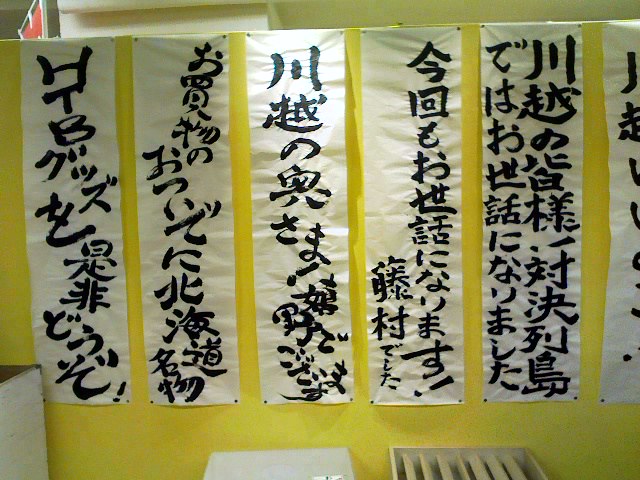 川越の皆様！対決列島
ではお世話になりました
今回もお世話になります！
藤村でした
川越の奥さま！
嬉野でございます
お買い物の
おついでに北海道
名物
HTBグッズ
を是非
どうぞ！